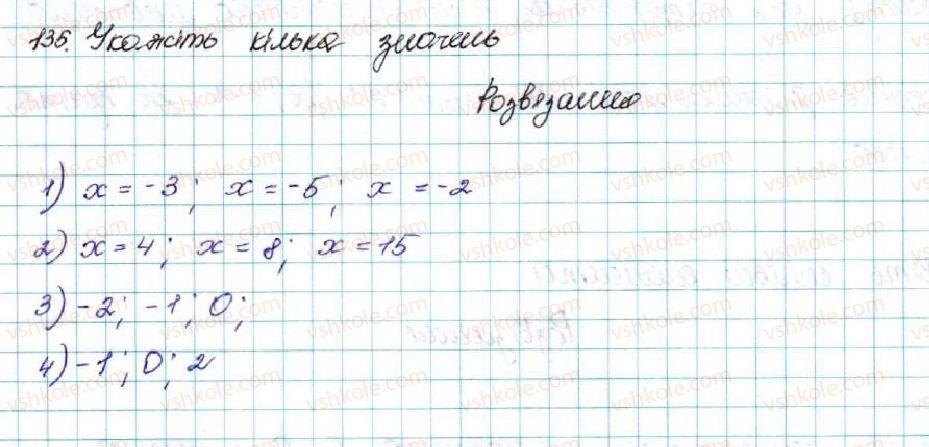 135. Укажіть кілька значень
Розвязання
1) x = -3; x = -5; x = -2
2) x = 4; x = 8; x = 15
3) -2; -1; 0;
4) -1; 0; 2